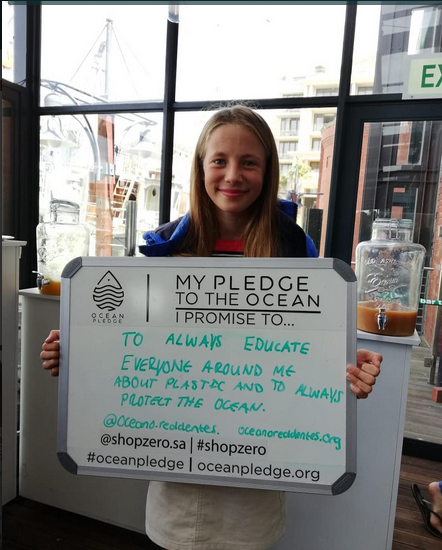 EX
OCEAN
PLEDGE
MY PLEDGE
TO THE OCEAN
I PROMISE TO...
TO ALWAYS EDUCATE
EVERYONE AROUND ME
ABOUT PLASTIC AND TO ALWAYS
PROTECT THE OCEAN.
@oceano.reddentes. oceanoreddentes.org
@shopzero.sa | #shopzero
#oceanpledge | oceanpledge.org